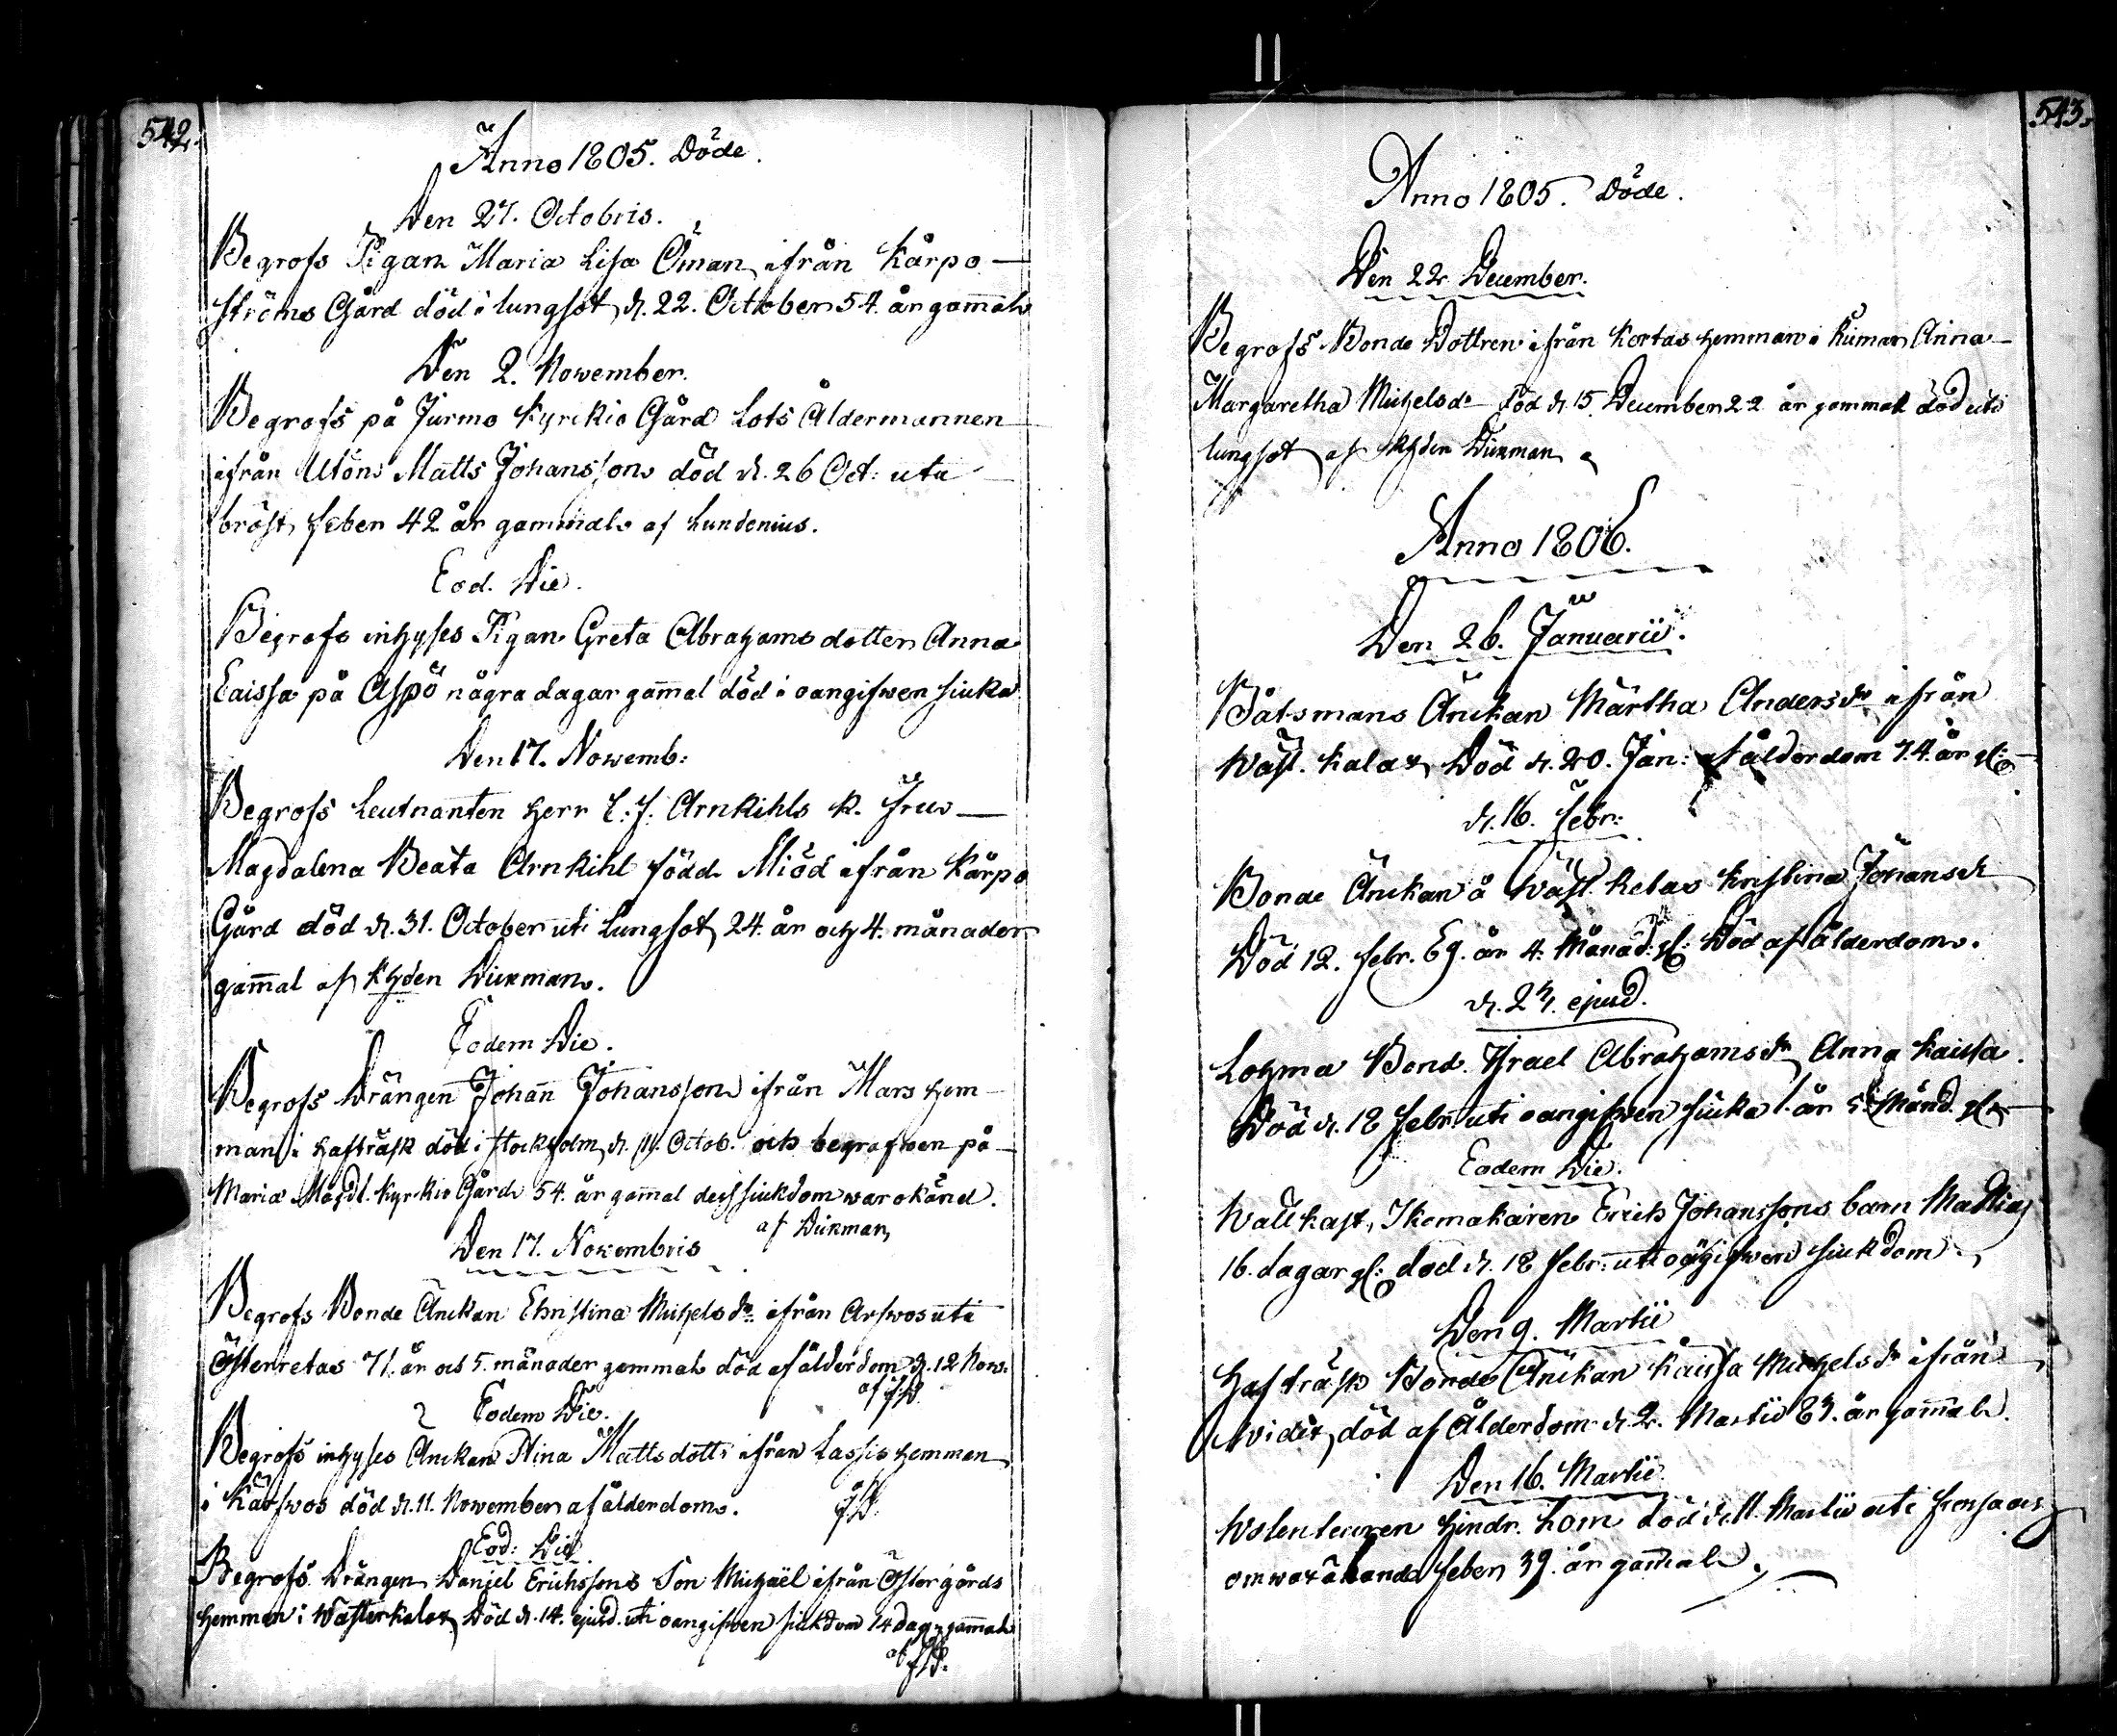 542.
Anno 1805. Döde.
Den 27. Octobris.
Begrofs Pigan Maria Lisa Öman ifrån Kårpo
ströms Gård död i lungsot d. 22. October 54. år gam̅al
Den 2. November.
Begrofs på Jurmo Kyrckio Gård Lots Åldermannen
ifrån Utöns Matts Johansson död d. 26 Oct: uta
bröst feber 42 år gammal af Lundenius.
Eod. Die.
Begrofs inhyses Pigan Greta Abrahams dotter Anna
Caissa på Aspö några dagar gam̅al död i oangifwen siuka
Den 17. Nowemb:
Begrofs Leutnanten Herr C. J. Arnkihls K. Fru
Magdalena Beata Arnkihl född Miöd ifrån Kårpo
Gård död d. 31. October uti Lungsot 24. år och 4. månader
gam̅al af Khden Dickman.
Eodem Die.
Begrofs Drängen Johan̅ Johansson ifrån Mars hem
man i Hafträsk död i Stockholm d. 11. Octob. och begrafwen på
Maria Magdl. Kyrckio Gård 54. år gam̅al dess siukdom war okänd.
af Dickman
Den 17. Novembris
Begrofs Bonde Änckan Christina Michelsdr: ifrån Arfwos uti
Österretas 71. år och 5. månader gammal död af ålderdom d. 12 Nov:
af JD.
Eodem Die.
Begrofs inhyses Änckan Stina Matts dottr ifrån Lassis hemman
i Kårfwos död d. 11. November af ålderdom. JD.
Eod: Die
Begrofs Drängen Daniel Erichssons Son Michaël ifrån Östergårds
hemman i Wästerkalax Död d. 14. ejusd. uti oangifwen siukdom 14 dag. gam̅al
af JD.
543.
Anno 1805. Döde.
Den 22 December.
Begrofs Bonde Dottren ifrån Kortas hemman i Kiman Anna
Margaretha Michelsdr död d. 15. December 22 år gammal död uti
lungsot af Khden Dickman
Anno 1806.
Den 26. Januarii.
Båtsmans Änckan Märtha Andersdr ifrån
Wäst. Kalax Död d. 20. Jan: af ålderdom 74. år gl:
d. 16. Febr:
Bonde Änckan å Wäst. Retas Kristina Jöransdr
Död 12. Febr. 69. år 4. Månad. gl: Död af Ålderdom.
d. 23. ejusd.
Lohma Bond. Israel Abrahamsdr Anna Kaissa.
Död d. 18 Febr: uti oangifwen siuka 1. år 5. Månd. gl:
Eodem Die.
Wallkast, Skomakaren Erich Johanssons barn Mathias
16. dagar gl: död d. 18 Febr: uti oangifwen siukdom.
Den 9. Martii
Hafträsk Bonde Änckan Kaissa Michelsdr ifrån
död af Ålderdom d. 2. Martii 83. år gam̅al.
Den 16. Martii
Hindr. Hom död d. 11. Martii uti
feber 39. år gam̅al.